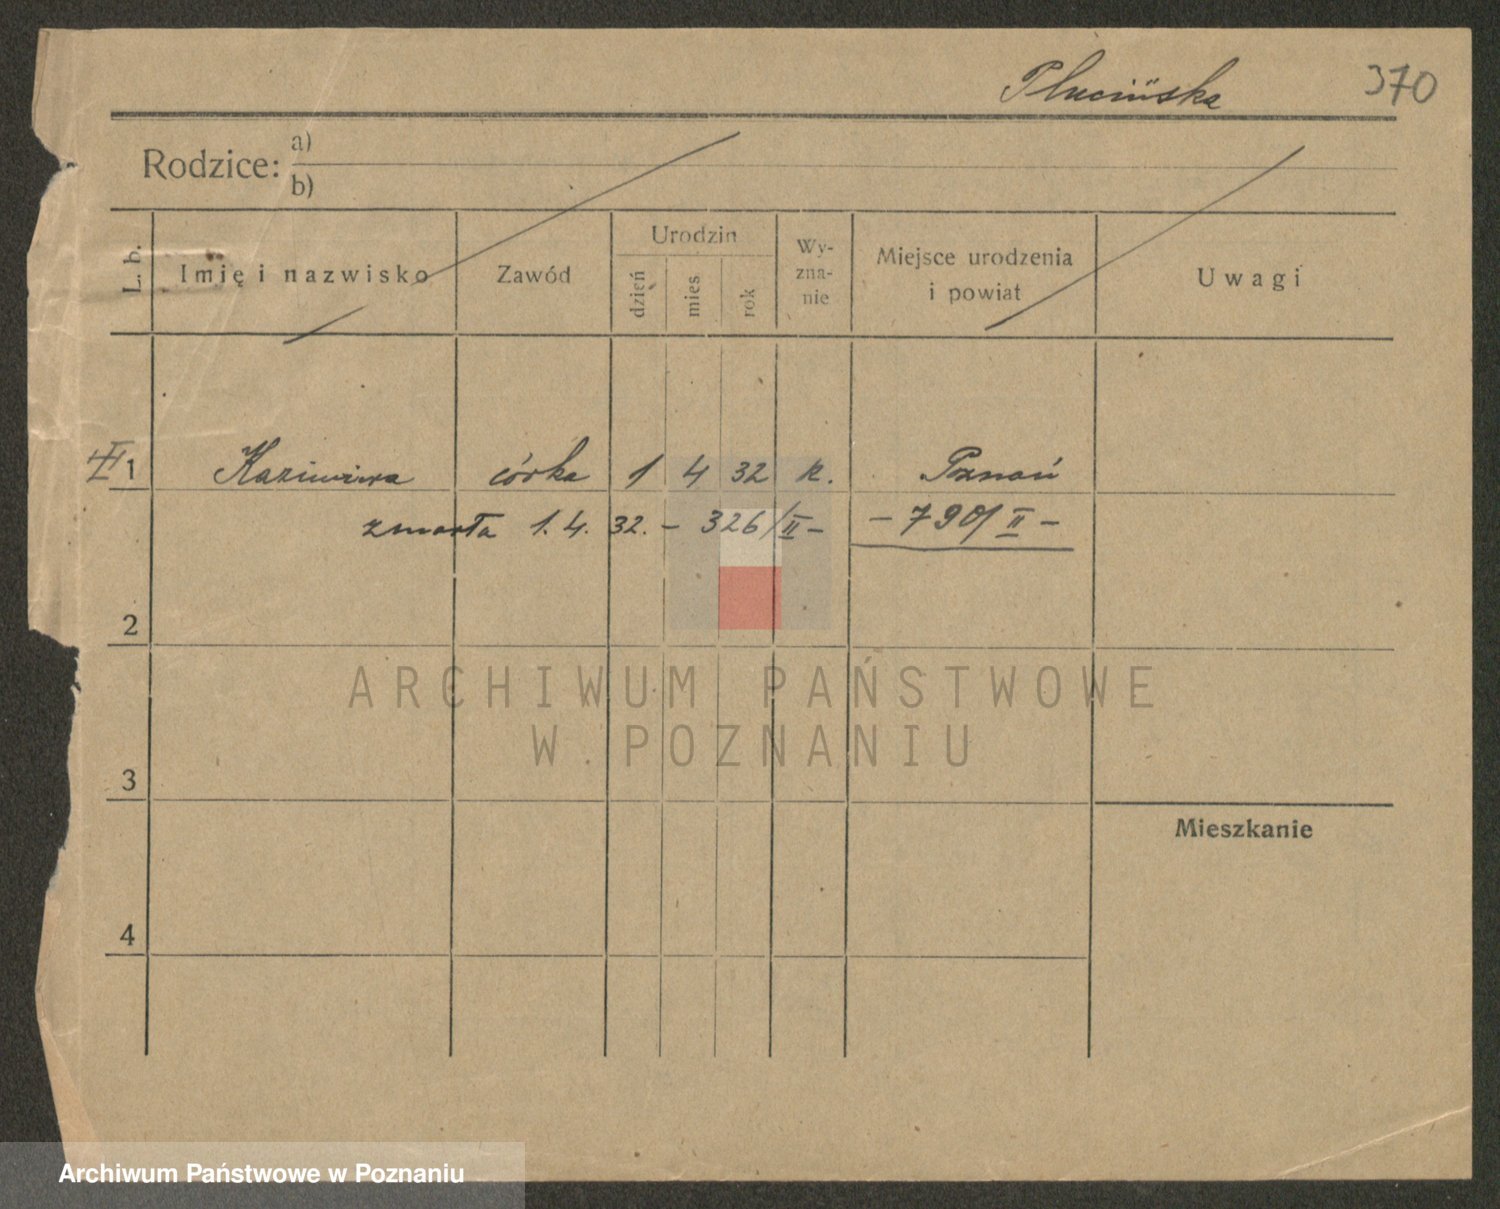 Plucińska 370
Rodzice: a)
b)
L. b. Imię i nazwisko Zawód Urodzin dzień mies rok Wy-zna-nie Miejsce urodzenia i powiat Uwagi
1 Kazimiera córka 1 4 32 k. Poznań
zmarła 1. 4. 32. – 326/II – – 790/II –
2
ARCHIWUM PAŃSTWOWE
W POZNANIU
3
Mieszkanie
4
Archiwum Państwowe w Poznaniu